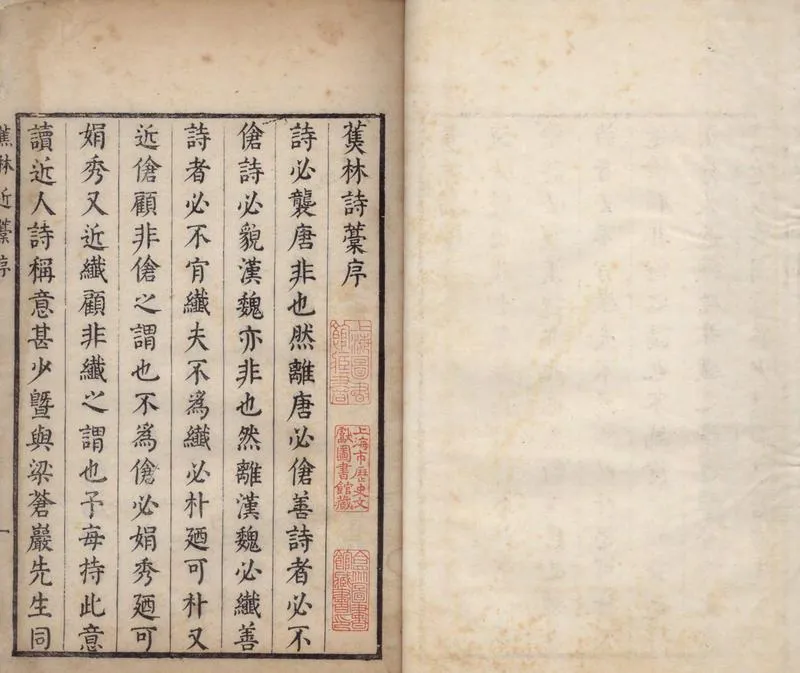 蕉林詩藳序
詩必襲唐非也然離唐必傖善詩者必不
傖詩必貌漢魏亦非也然離漢魏必纖善
詩者必不肎纖夫不爲纖必朴廼可朴又
近傖顧非傖之謂也不爲傖必娟秀廼可
娟秀又近纖顧非纖之謂也予每持此意
讀近人詩稱意甚少曁與梁蒼巖先生同
蕉林近藳序
一
上海圖書館藏書
上海市歷史文獻圖書館藏
合衆圖書館藏書印